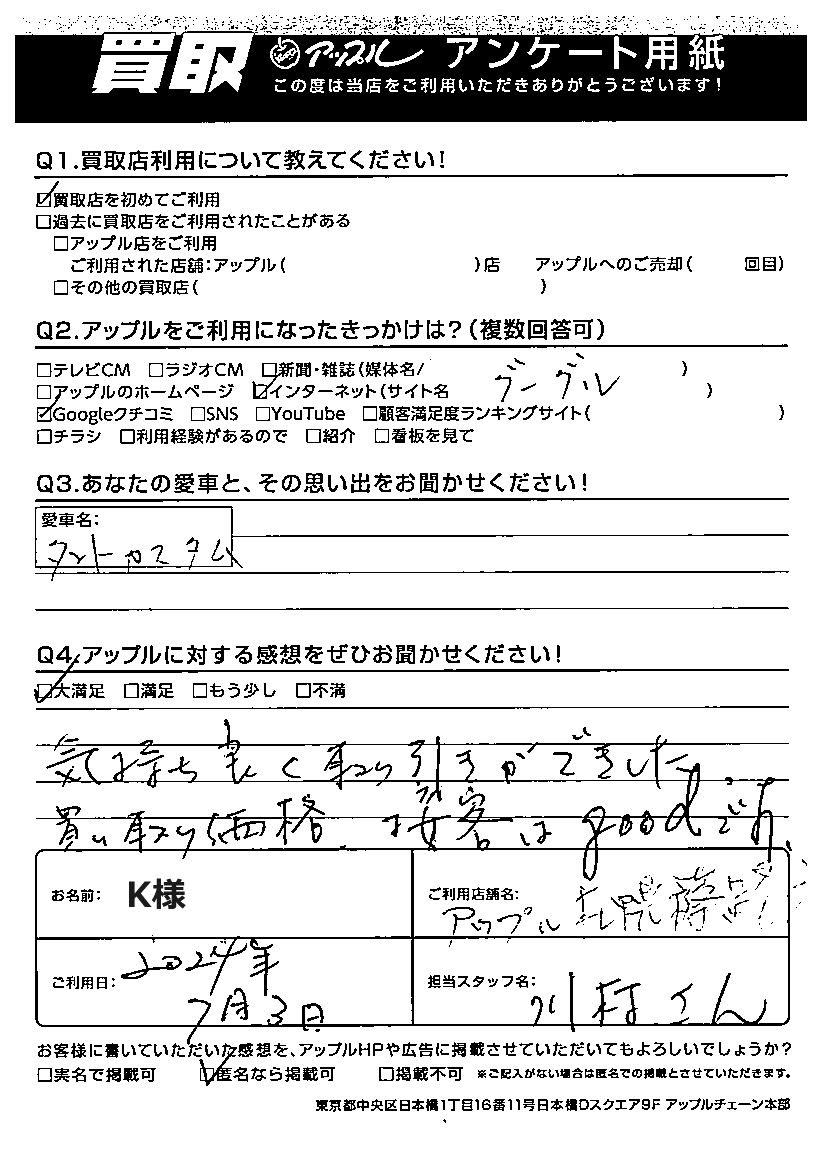 買取 アップル アンケート用紙
この度は当店をご利用いただきありがとうございます!
Q1.買取店利用について教えてください!
☑買取店を初めてご利用
□過去に買取店をご利用されたことがある
□アップル店をご利用
ご利用された店舗:アップル( )店 アップルへのご売却( 回目)
□その他の買取店( )
Q2.アップルをご利用になったきっかけは?(複数回答可)
□テレビCM □ラジオCM □新聞・雑誌(媒体名/ )
□アップルのホームページ ☑インターネット(サイト名 グーグル )
☑Googleクチコミ □SNS □YouTube □顧客満足度ランキングサイト( )
□チラシ □利用経験があるので □紹介 □看板を見て
Q3.あなたの愛車と、その思い出をお聞かせください!
愛車名:
タントカスタム
Q4.アップルに対する感想をぜひお聞かせください!
☑大満足 □満足 □もう少し □不満
気持ち良く取り引きができました
買い取り価格、接客はgoodです。
お名前: K様
ご利用店舗名:
アップル札幌
ご利用日: 2024年
7月3日
担当スタッフ名:
川村さん
お客様に書いていただいた感想を、アップルHPや広告に掲載させていただいてもよろしいでしょうか?
□実名で掲載可 ☑匿名なら掲載可 □掲載不可 ※ご記入がない場合は匿名での掲載とさせていただきます。
東京都中央区日本橋1丁目16番11号日本橋Dスクエア9F アップルチェーン本部